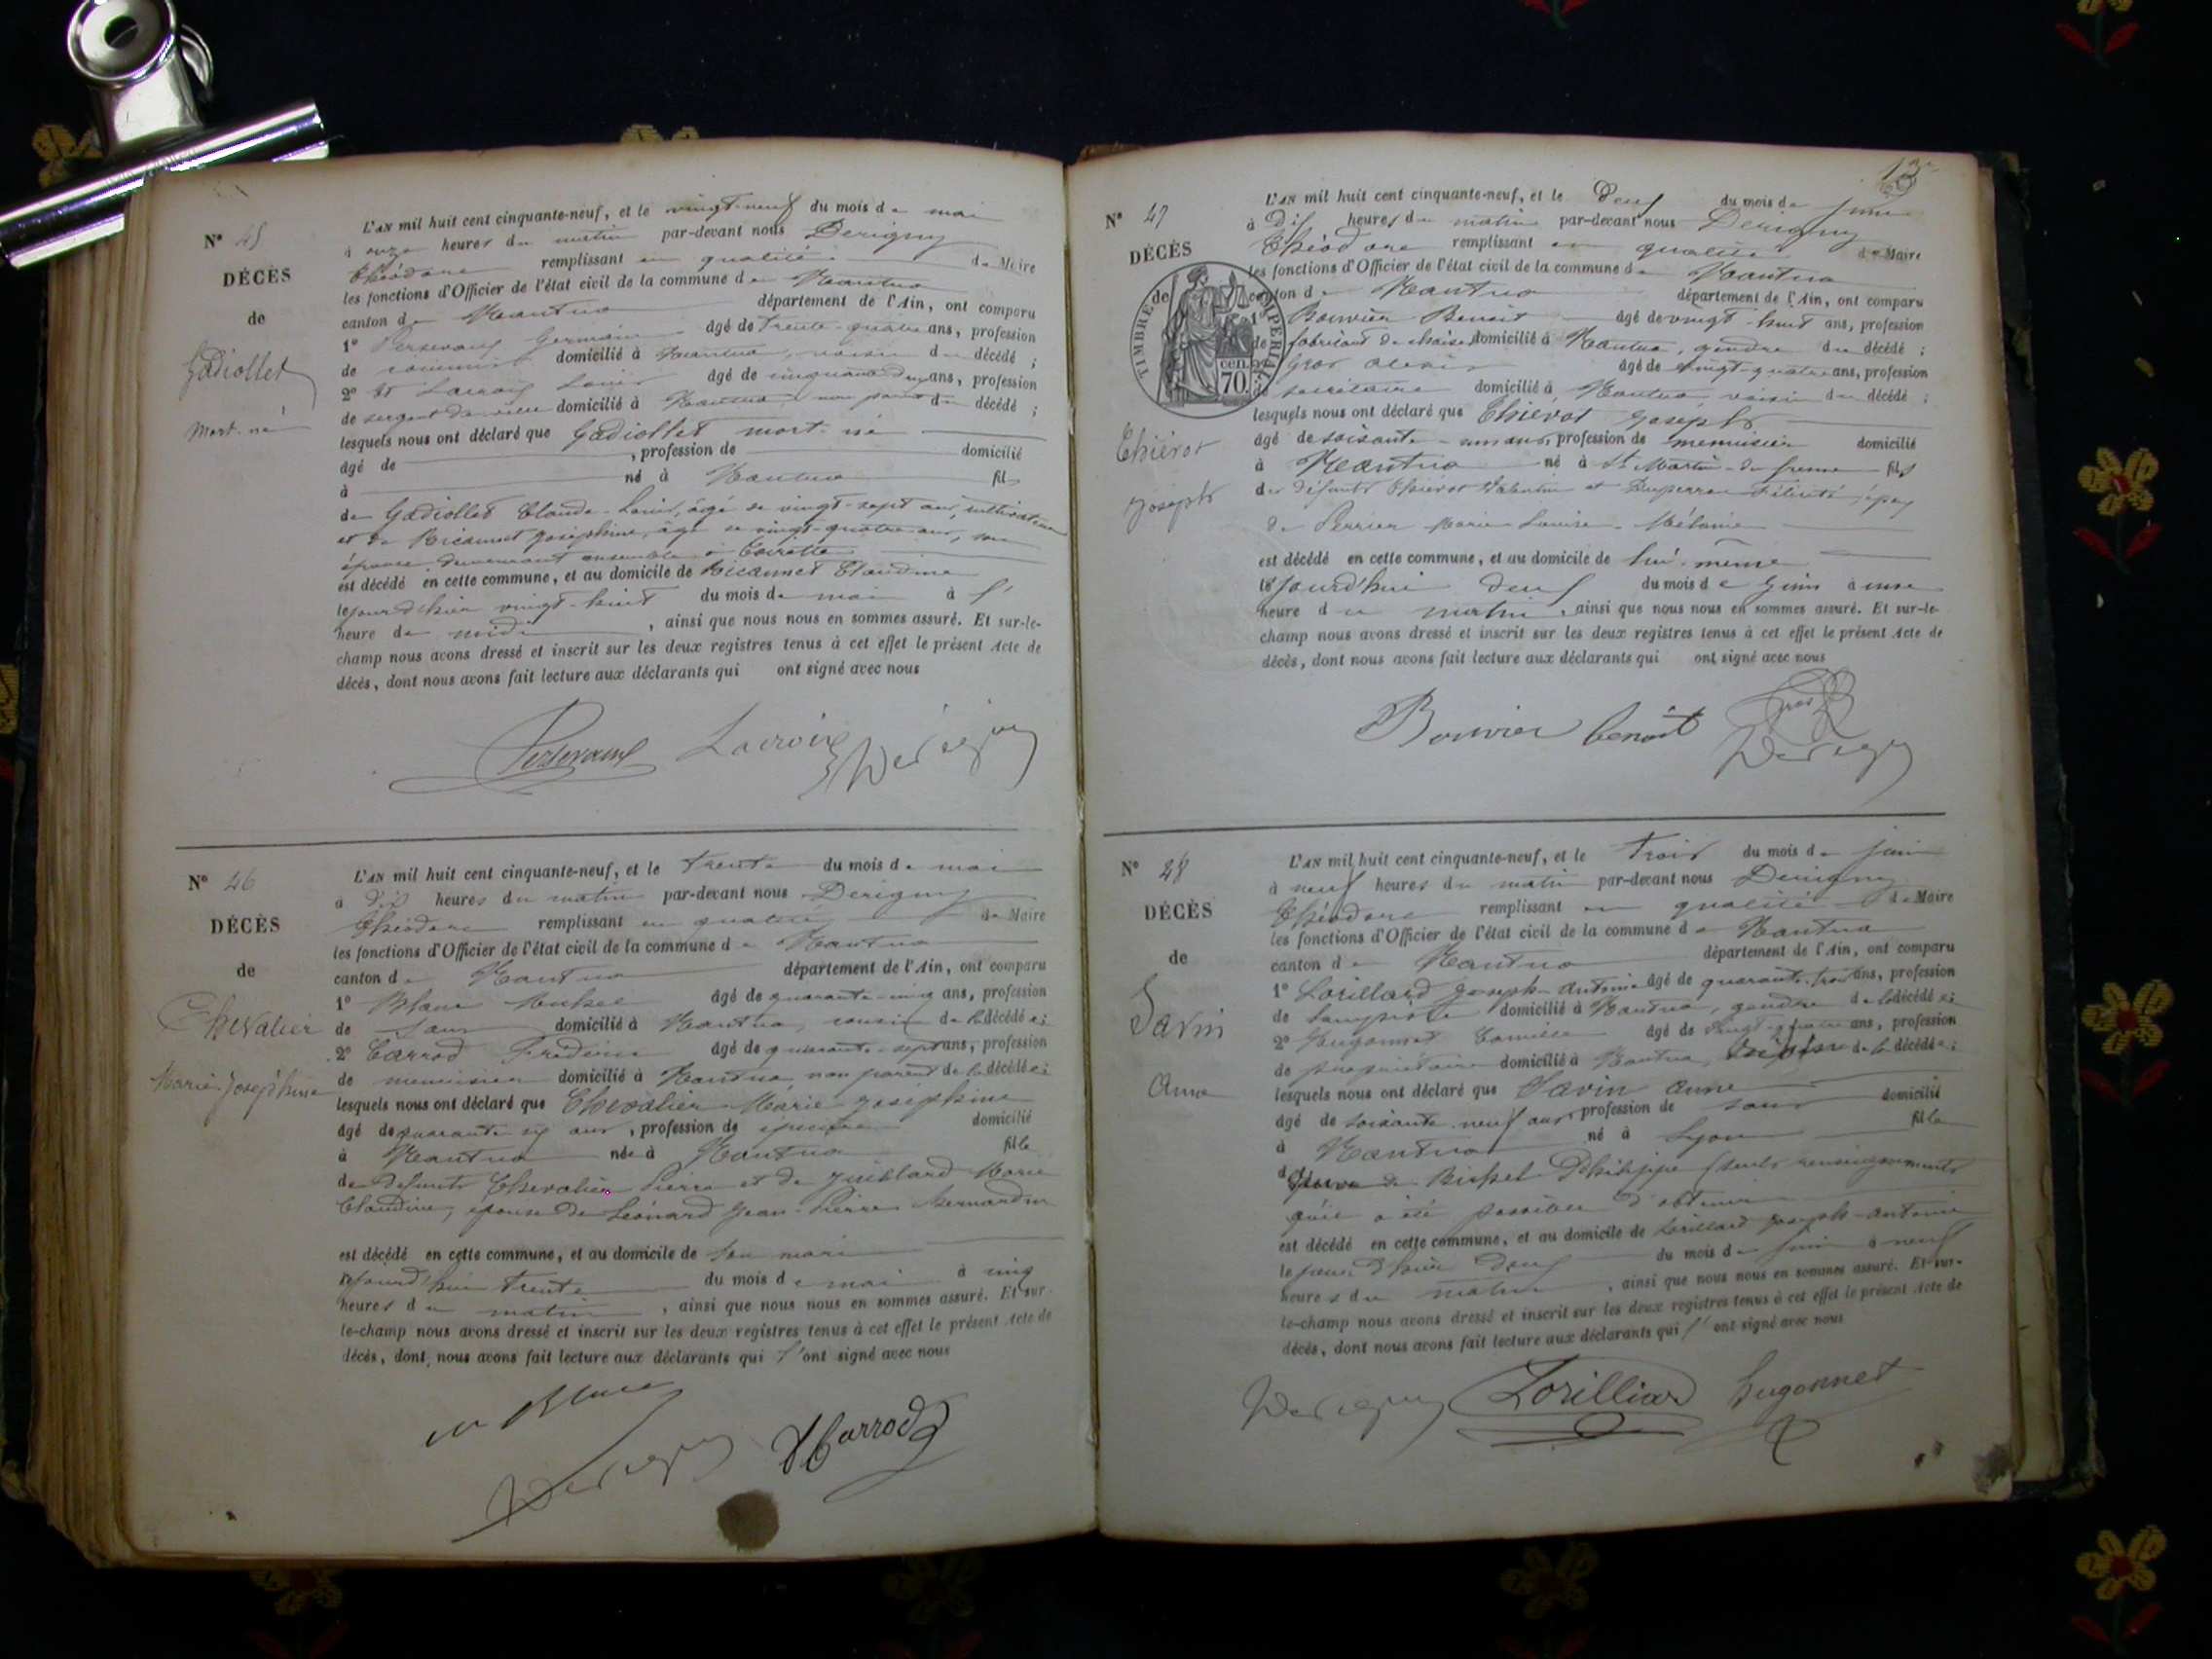 N° 45
DÉCÈS
de
Gadiollet
Mort-né
L'AN mil huit cent cinquante-neuf, et le vingt-neuf du mois de mai
à onze heures du matin par-devant nous Derigny
Théodore remplissant en qualité de Maire
les fonctions d'Officier de l'état civil de la commune de Nantua
canton de Nantua département de l'Ain, ont comparu
1° Germain âgé de trente-quatre ans, profession
de commis domicilié à Nantua, voisin du décédé ;
2° et Lacroix Louis âgé de cinquante-deux ans, profession
de sergent de ville domicilié à Nantua non parent du décédé ;
lesquels nous ont déclaré que Gadiollet mort-né
âgé de , profession de domicilié
à né à Nantua fils
de Gadiollet Claude-Louis, âgé de vingt-sept ans, cultivateur
et de Josephine, âgée de vingt-quatre ans, son
épouse demeurant ensemble à
est décédé en cette commune, et au domicile de Claudine
le jour d'hier vingt-huit du mois de mai à l'
heure de midi , ainsi que nous nous en sommes assuré. Et sur-le-
champ nous avons dressé et inscrit sur les deux registres tenus à cet effet le présent Acte de
décès, dont nous avons fait lecture aux déclarants qui ont signé avec nous
Lacroix Derigny
N° 46
DÉCÈS
de
Chevalier
Marie-Joséphine
L'AN mil huit cent cinquante-neuf, et le trente du mois de mai
à dix heures du matin par-devant nous Derigny
Théodore remplissant en qualité de Maire
les fonctions d'Officier de l'état civil de la commune de Nantua
canton de Nantua département de l'Ain, ont comparu
1° Blanc Michel âgé de quarante-cinq ans, profession
de sans domicilié à Nantua, cousin de la décédée ;
2° Carrod Frédéric âgé de quarante-sept ans, profession
de menuisier domicilié à Nantua, non parent de la décédée ;
lesquels nous ont déclaré que Chevalier Marie-Joséphine
âgé de quarante six ans , profession de épicière domicilié
à Nantua née à Nantua fille
de défunts Chevalier Pierre et de Juillard Marie
Claudine, épouse de Léonard Jean-Pierre Bernardin
est décédé en cette commune, et au domicile de son mari
le jourd'hui trente du mois de mai à cinq
heures du matin , ainsi que nous nous en sommes assuré. Et sur-
le-champ nous avons dressé et inscrit sur les deux registres tenus à cet effet le présent Acte de
décès, dont nous avons fait lecture aux déclarants qui l'ont signé avec nous
M Blanc
Derigny Carrod
13
N° 47
DÉCÈS
de
TIMBRE IMPERIAL
1F
cen.
70
Thiévot
Joseph
L'AN mil huit cent cinquante-neuf, et le Deux du mois de juin
à Dix heures du matin par-devant nous Derigny
Théodore remplissant en qualité de Maire
les fonctions d'Officier de l'état civil de la commune de Nantua
canton de Nantua département de l'Ain, ont comparu
1° Bouvier Benoit âgé de vingt-huit ans, profession
de fabricant de chaises domicilié à Nantua, gendre du décédé ;
2° Gros Alexis âgé de vingt-quatre ans, profession
de secrétaire domicilié à Nantua, voisin du décédé ;
lesquels nous ont déclaré que Thiévot Joseph
âgé de soixante-un ans, profession de menuisier domicilié
à Nantua né à St Martin-du-fresne fils
des défunts Thiévot Valentin et Félicité, époux
de Perrier Marie-Louise-Mélanie
est décédé en cette commune, et au domicile de lui-même
le jourd'hui deux du mois de Juin à une
heure du matin , ainsi que nous nous en sommes assuré. Et sur-le-
champ nous avons dressé et inscrit sur les deux registres tenus à cet effet le présent Acte de
décès, dont nous avons fait lecture aux déclarants qui ont signé avec nous
Bouvier benoit Gros
Derigny
N° 48
DÉCÈS
de
Savin
Anne
L'AN mil huit cent cinquante-neuf, et le trois du mois de juin
à neuf heures du matin par-devant nous Derigny
Théodore remplissant en qualité de Maire
les fonctions d'Officier de l'état civil de la commune de Nantua
canton de Nantua département de l'Ain, ont comparu
1° Lorillard Joseph-Antoine âgé de quarante-trois ans, profession
de lampiste domicilié à Nantua, gendre de la décédée ;
2° Hugonnet Camille âgé de vingt-quatre ans, profession
de propriétaire domicilié à Nantua, de la décédée ;
lesquels nous ont déclaré que Savin Anne
âgé de soixante-neuf ans profession de sans domicilié
à Nantua né à Lyon fille
de veuve de Philippe (seuls renseignements
qu'il a été possible d'obtenir
est décédé en cette commune, et au domicile de Lorillard Joseph-Antoine
le jour d'hier deux du mois de juin à neuf
heures du matin , ainsi que nous nous en sommes assuré. Et sur-
le-champ nous avons dressé et inscrit sur les deux registres tenus à cet effet le présent Acte de
décès, dont nous avons fait lecture aux déclarants qui l'ont signé avec nous
Derigny Lorilliard hugonnet